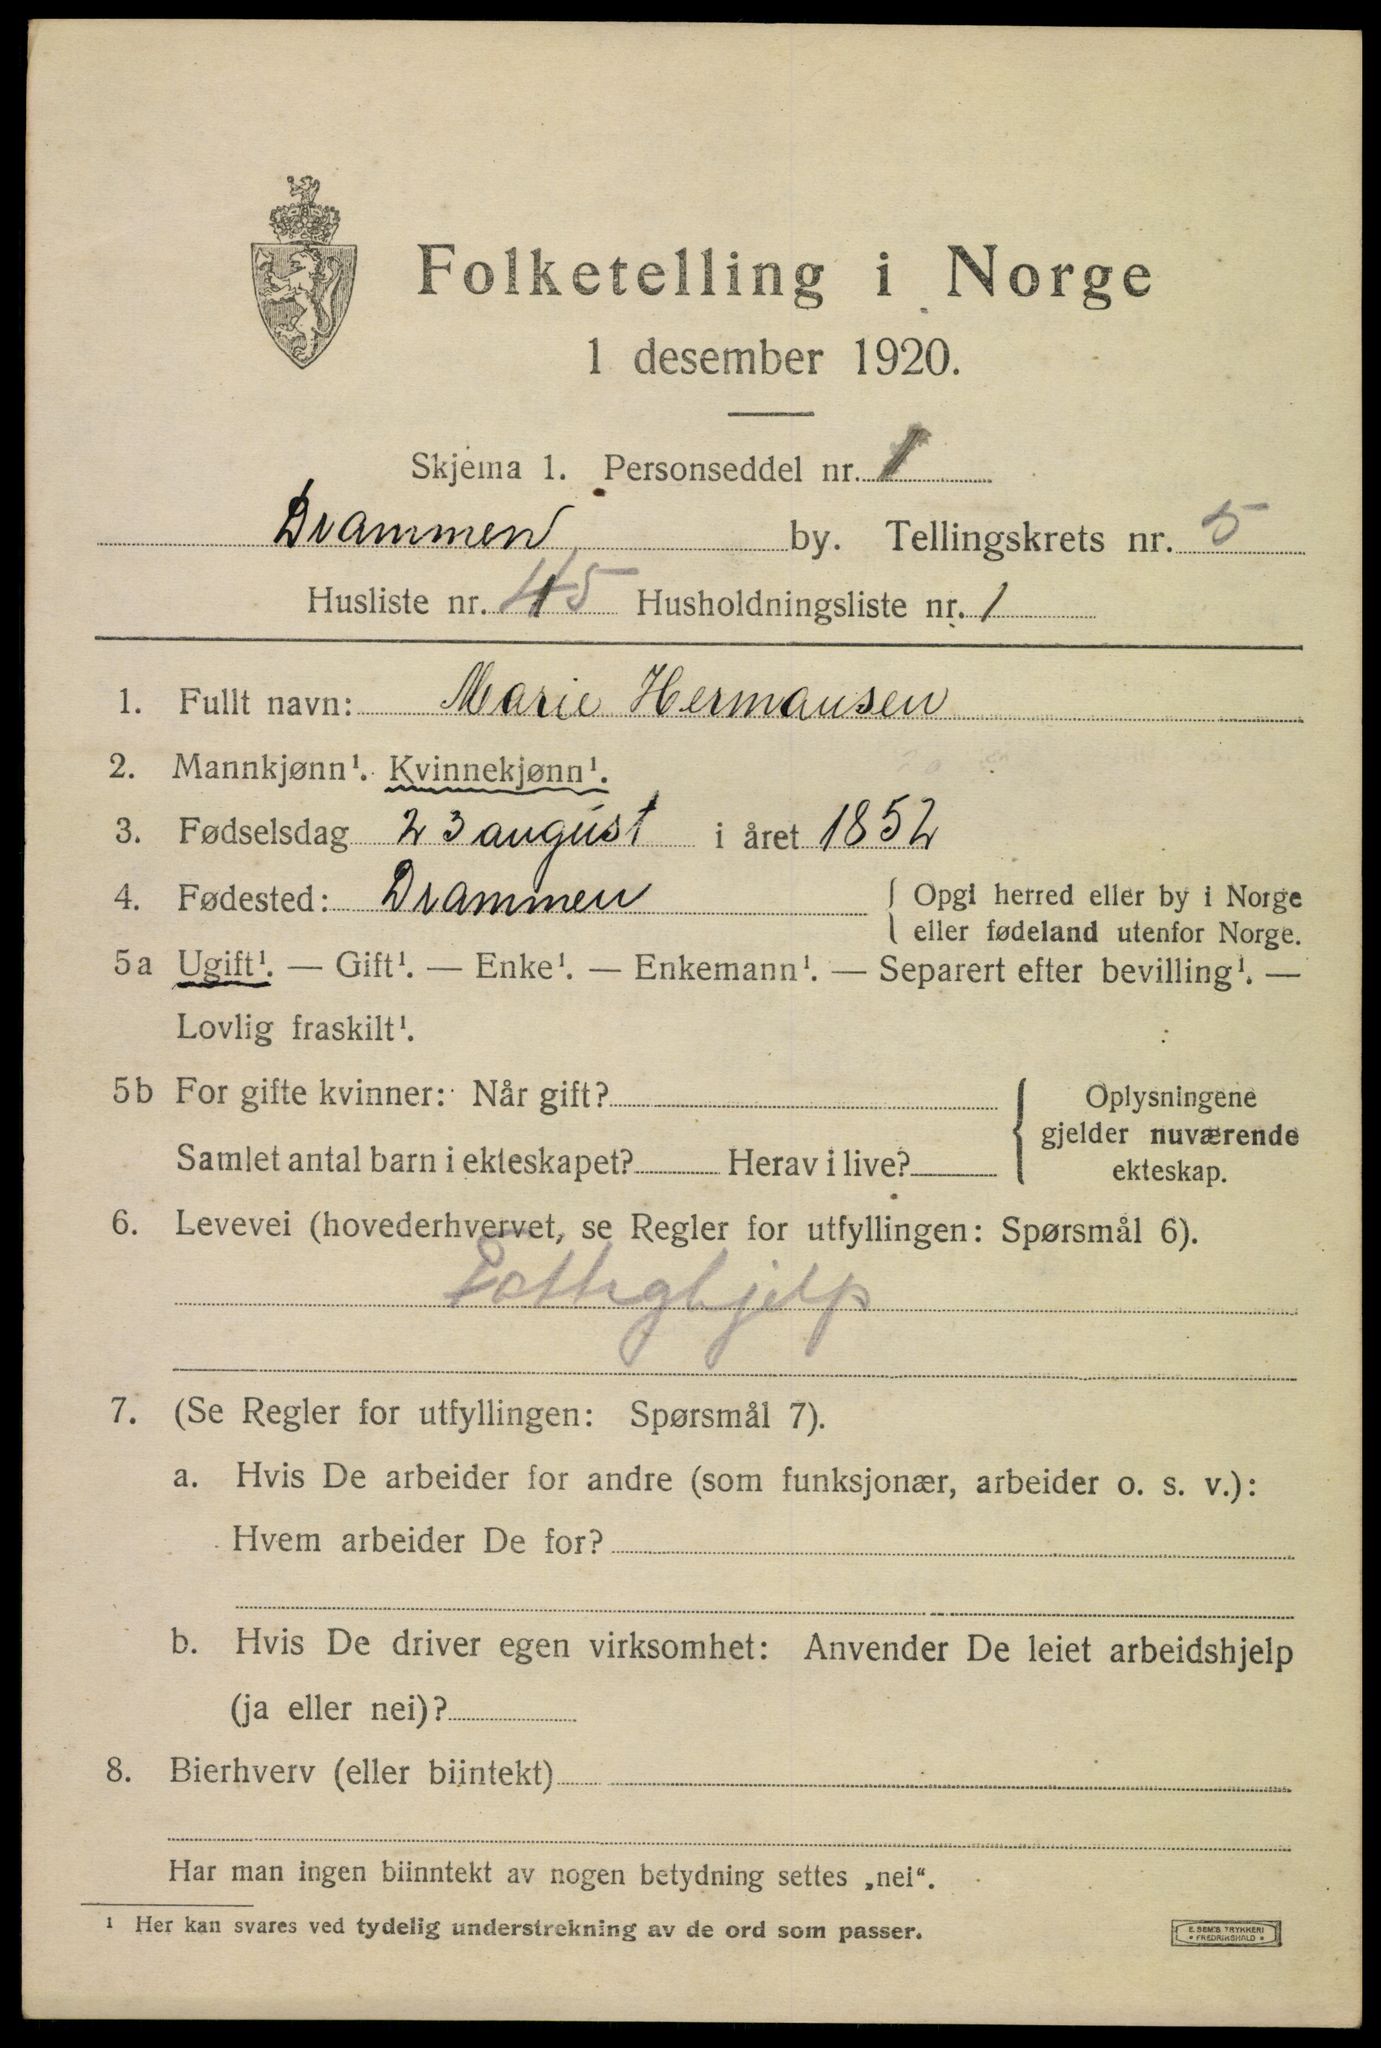 Folketelling i Norge
1 desember 1920.
Skjema 1. Personseddel nr. 1
Drammen by. Tellingskrets nr. 5
Husliste nr. 45 Husholdningsliste nr. 1
1. Fullt navn: Marie Hermansen
2. Mannkjønn¹. Kvinnekjønn¹.
3. Fødselsdag 23 august i året 1852
4. Fødested: Drammen { Opgi herred eller by i Norge
eller fødeland utenfor Norge.
5a Ugift¹. — Gift¹. — Enke¹. — Enkemann¹. — Separert efter bevilling¹. —
Lovlig fraskilt¹.
5b For gifte kvinner: Når gift? { Oplysningene
gjelder nuværende
Samlet antal barn i ekteskapet? Herav i live? ekteskap.
6. Levevei (hovederhvervet, se Regler for utfyllingen: Spørsmål 6).
Fattighjelp
7. (Se Regler for utfyllingen: Spørsmål 7).
a. Hvis De arbeider for andre (som funksjonær, arbeider o. s. v.):
Hvem arbeider De for?
b. Hvis De driver egen virksomhet: Anvender De leiet arbeidshjelp
(ja eller nei)?
8. Bierhverv (eller biintekt)
Har man ingen biinntekt av nogen betydning settes „nei“.
¹ Her kan svares ved tydelig understrekning av de ord som passer.
E. SEM'S TRYKKERI
• FREDRIKSHALD •